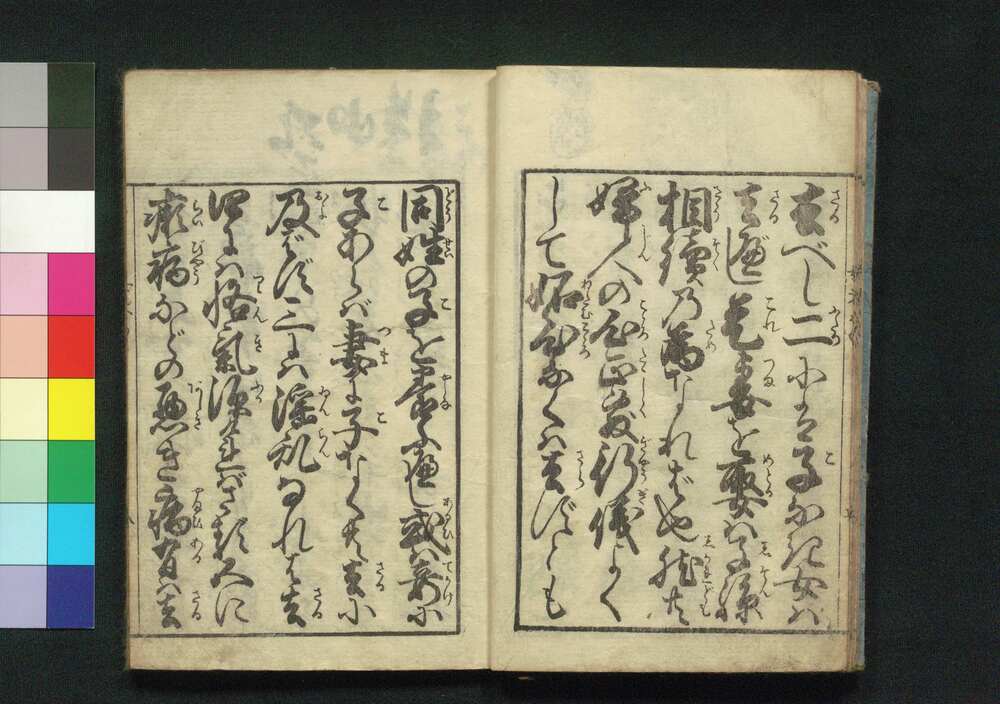 去べし二には子なき女は
去べし是妻を娶は子孫
相續の為なれば也然共
婦人の心正敷行儀よく
して妬心なくは去ずとも
同姓の子を養ふべし或は妾に
子あらば妻に子なく共去に
及ばず三には淫乱なれば去
四には悋氣深ければ去五に
癩病などの悪き病有は去